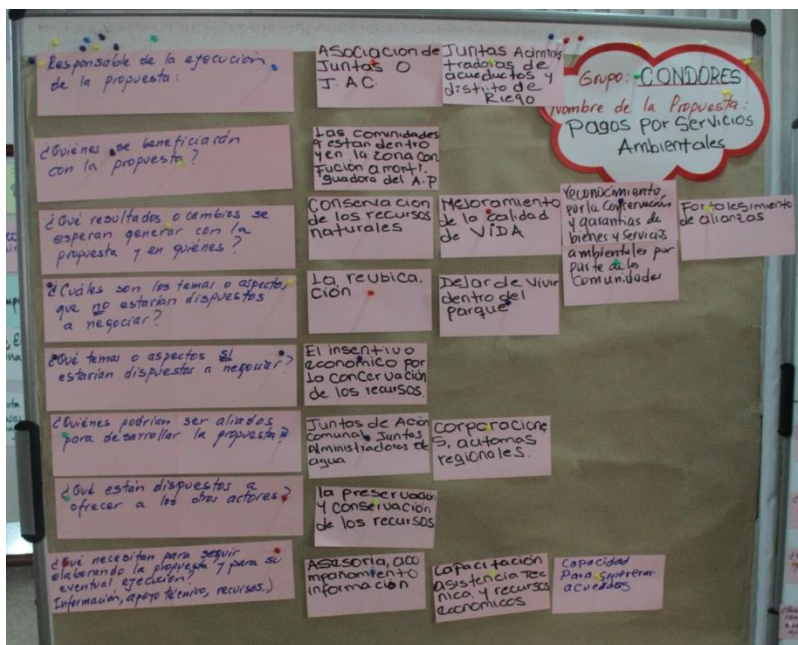 Grupo: CONDORES
Nombre de la Propuesta:
Pagos por Servicios
Ambientales
Responsable de la ejecución
de la propuesta:
Asociacion de
Juntas O
J. AC.
Juntas Adminis
tradoras de
acueductos y
distrito de
Riego
¿Quiénes se beneficiarán
con la propuesta?
Las comunidades
q estan dentro
y en la zona con
Fución amorti.
guadora del A.P
¿Qué resultados o cambios se
esperan generar con la
propuesta y en quiénes?
Conservacion
de los recursos
naturales
Mejoramiento
de la calidad
de ViDA
reconocimiento,
por la conservación
y garantias de
bienes y servicios
ambientales por
parte de las
Comunidades
Fortalesimiento
de alianzas
¿Cuáles son los temas o aspectos
que no estarían dispuestos
a negociar?
La reubica.
ción
Dejar de Vivir
dentro del
parque
¿Qué temas o aspectos sí
estarían dispuestos a negociar?
El insentivo
económico por
la concervación
de los recursos.
¿Quiénes podrían ser aliados
para desarrollar la propuesta?
Juntas de Ación
comunal, Juntas
Administradoras de
agua
corporacione
s, automas
regionales.
¿Qué están dispuestos a
ofrecer a los otros actores?
la preservación
y conservación
de los recursos
¿Qué necesitan para seguir
elaborando la propuesta y para su
eventual ejecución?
Información, apoyo técnico, recursos.)
Asesoria, aco
mpañamiento
información
capacitación
asistencia Tec
nica. y recursos
economicos
Capacidad
Para
acuerdos